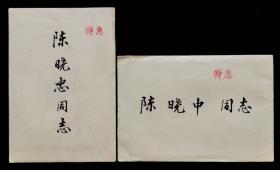 特急
陈晓忠同志
特急
陈晓中同志